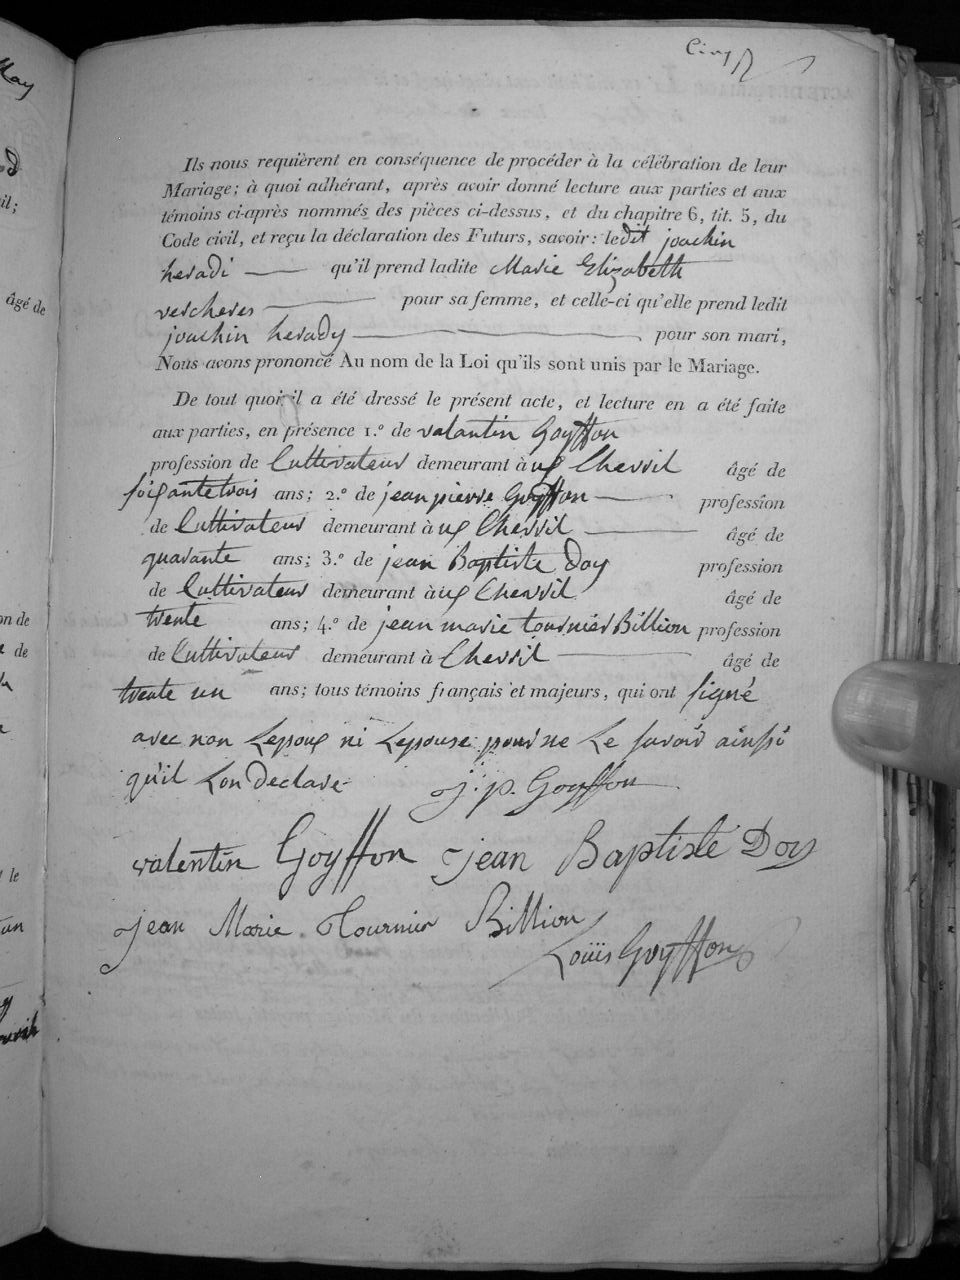 Cinq
Ils nous requièrent en conséquence de procéder à la célébration de leur
Mariage; à quoi adhérant, après avoir donné lecture aux parties et aux
témoins ci-après nommés des pièces ci-dessus, et du chapitre 6, tit. 5, du
Code civil, et reçu la déclaration des Futurs, savoir: ledit joachin
heradi qu'il prend ladite Marie Elizabeth
vercheres pour sa femme, et celle-ci qu'elle prend ledit
joachin herady pour son mari,
Nous avons prononcé Au nom de la Loi qu'ils sont unis par le Mariage.
De tout quoi il a été dressé le présent acte, et lecture en a été faite
aux parties, en présence 1.º de valantin Goyffon
profession de Cultivateur demeurant à Chevril âgé de
soixantetrois ans; 2.º de jean pierre Goyffon profession
de Cultivateur demeurant à Chevril âgé de
quarante ans; 3.º de jean Baptiste Doy profession
de Cultivateur demeurant à Chevril âgé de
trente ans; 4.º de jean marie tournier Billion profession
de Cultivateur demeurant à Chevril âgé de
trente un ans; tous témoins français et majeurs, qui ont signé
avec non Lepoux ni Lepouse pour ne Le savoir ainssi
qu'il Lon Declare j. p. Goyffon
valentin Goyffon jean Baptiste Doy
jean Marie Tournier Billion
Louis Goyffon